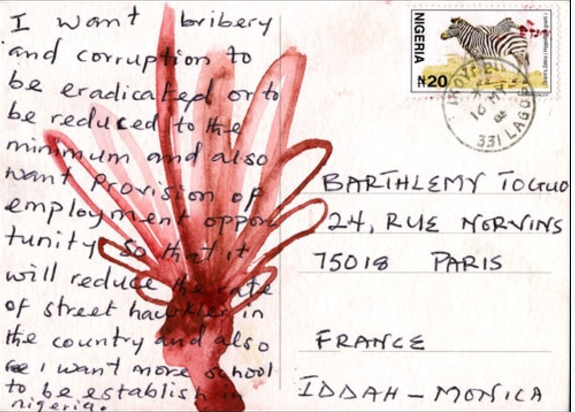 I want bribery
and corruption to
be eradicated or to
be reduced to the
minimum and also
want provision of
employment oppor
tunity so that it
will reduce the rate
of street hawkler in
the country and also
I want more school
to be establish in
nigeria.
NIGERIA
₦20
LAGOS
331
BARTHLEMY TOGUO
24, RUE NORVINS
75018 PARIS
FRANCE
IDDAH - MONICA